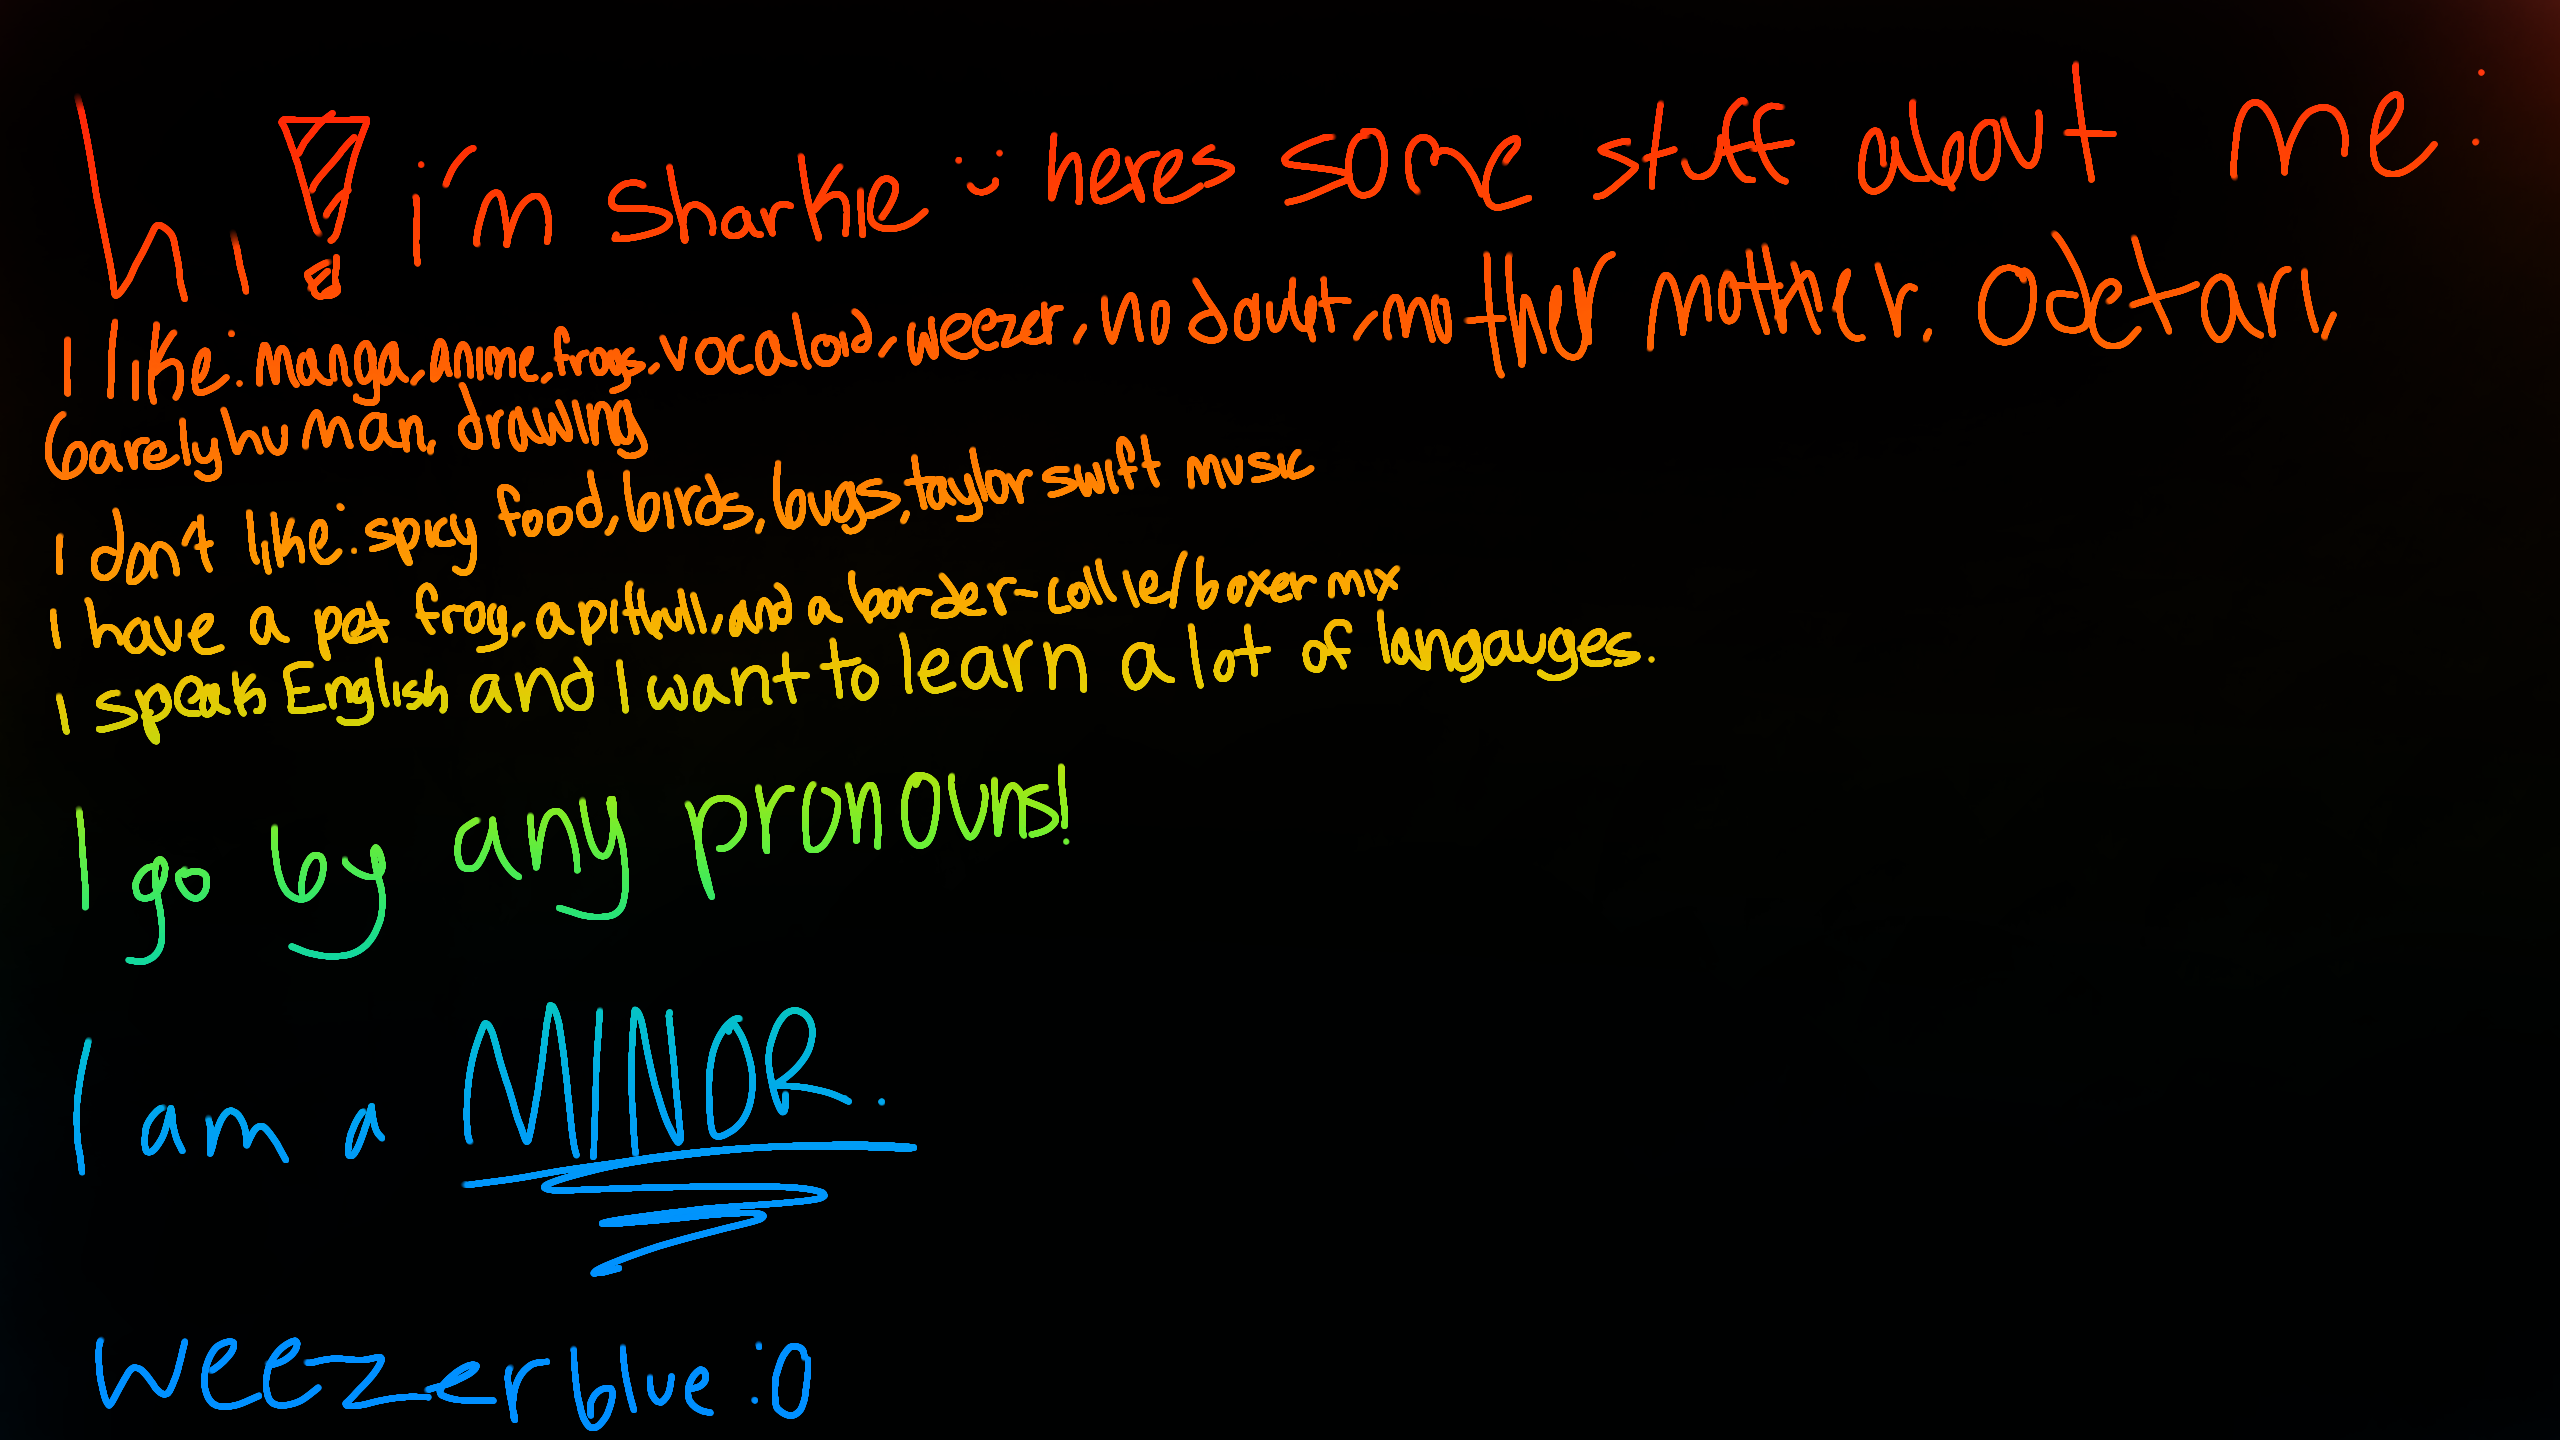 hi! i'm sharkie :) heres some stuff about me:
I like: manga, anime, frogs, vocaloid, weezer, no doubt, mother mother, Odetari,
6arelyhuman, drawing
I don't like: spicy food, birds, bugs, taylor swift music
I have a pet frog, a pitbull, and a border-collie/boxer mix
I speak English and I want to learn a lot of langauges.
I go by any pronouns!
I am a MINOR.
weezer blue :0